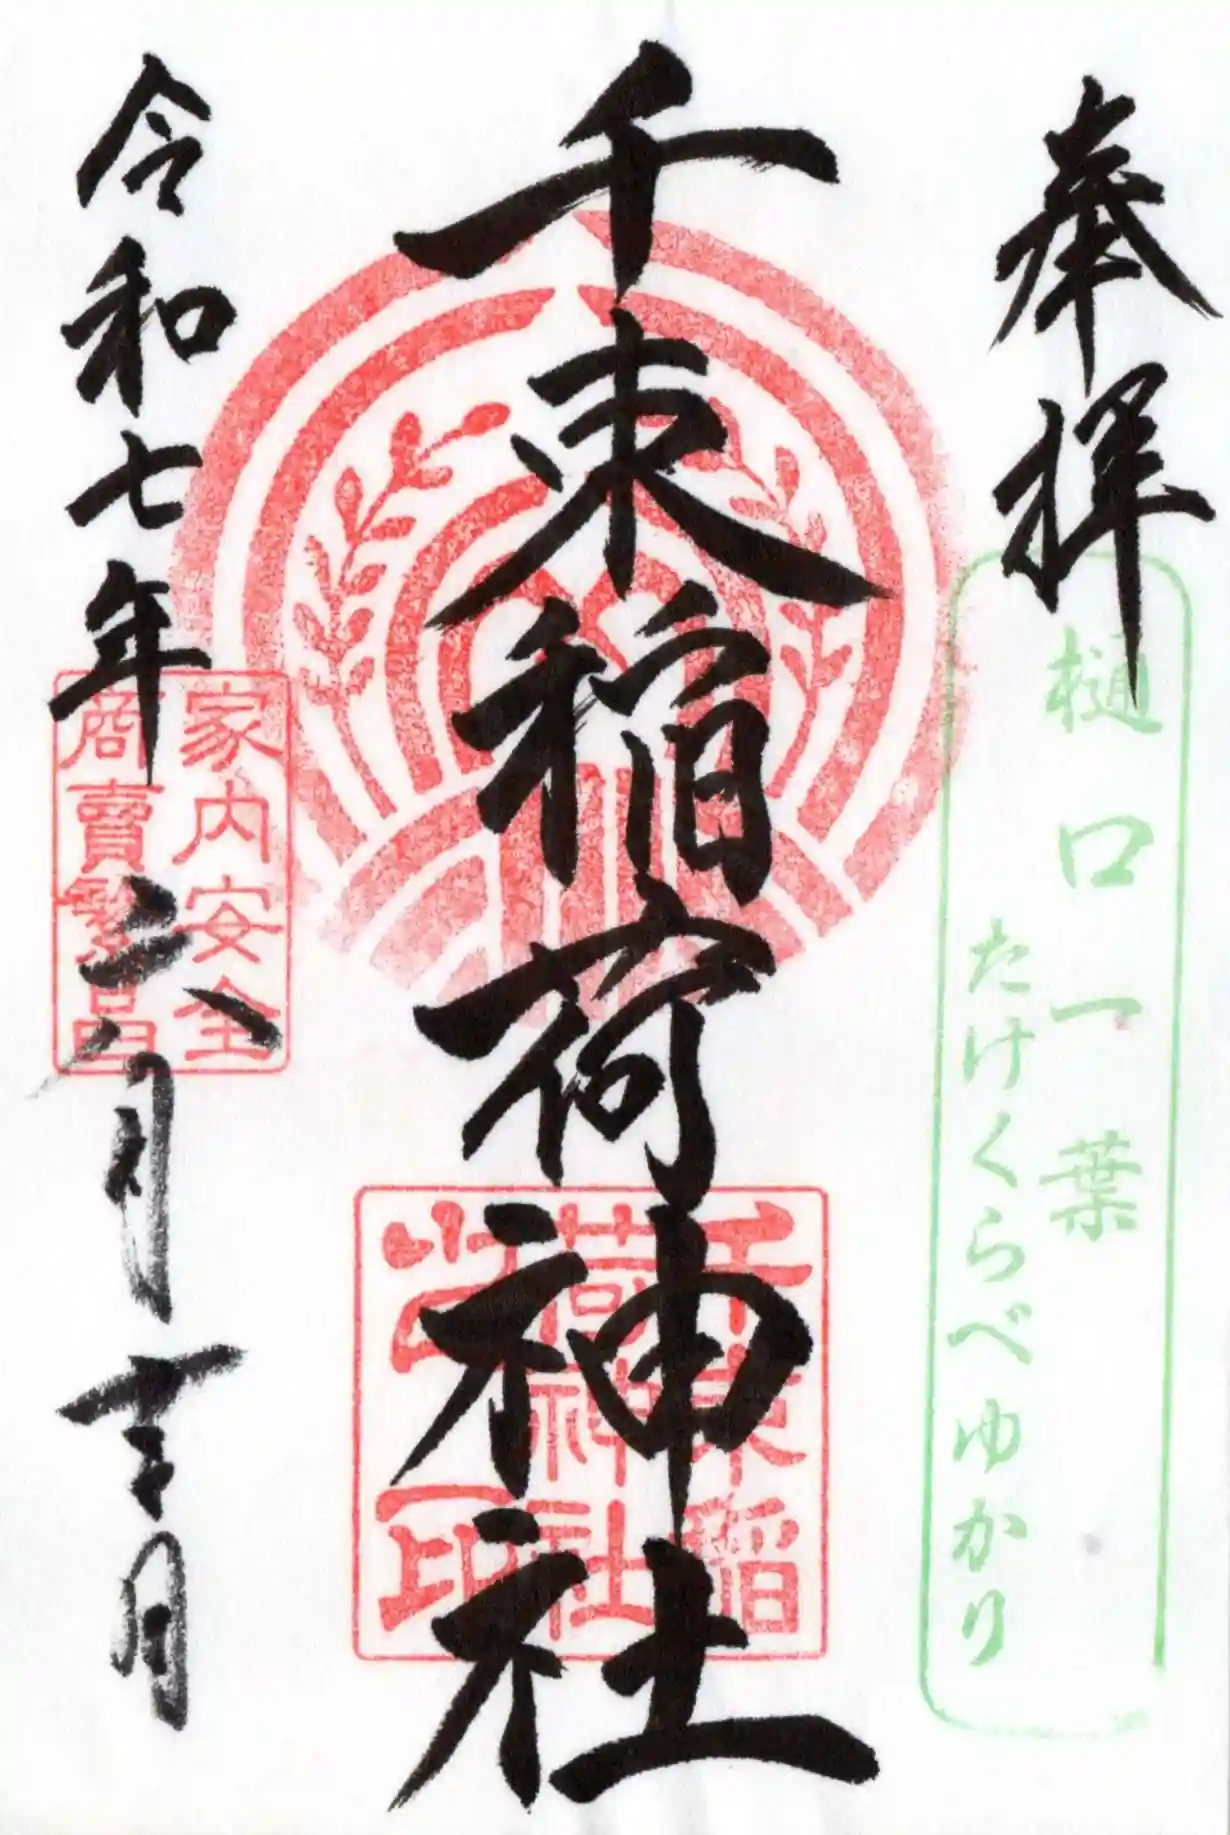 奉拝
樋口一葉
たけくらべゆかり
千束稲荷神社
千束稲
荷神社
之印
令和七年六月
家内安全
商賣繁昌